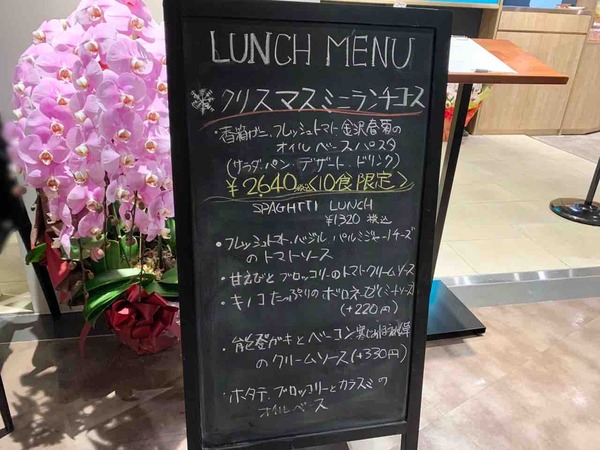 LUNCH MENU
クリスマスミニランチコース
・香箱ガニ.フレッシュトマト金沢春菊の
オイルベースパスタ
(サラダ.パン.デザート.ドリンク)
¥2640税込<10食限定>
SPAGHTTI LUNCH
¥1320 税込
・フレッシュトマト.バジル パルミジャーノチーズ
のトマトソース
・甘えびとブロッコリーのトマトクリームソース
・キノコたっぷりのボロネーゼ(ミートソース)
(+220円)
・能登ガキとベーコン寒じめほうれん草
のクリームソース(+330円)
・ホタテ.ブロッコリーとカラスミの
オイルベース